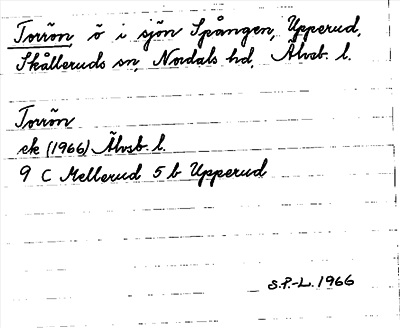 Torrön, ö i sjön Spången, Upperud,
Skålleruds sn, Nordals hd, Älvsb. l.
Torrön
ek (1966) Älvsb. l.
9 C Mellerud 5 b Upperud
S.P.-L. 1966